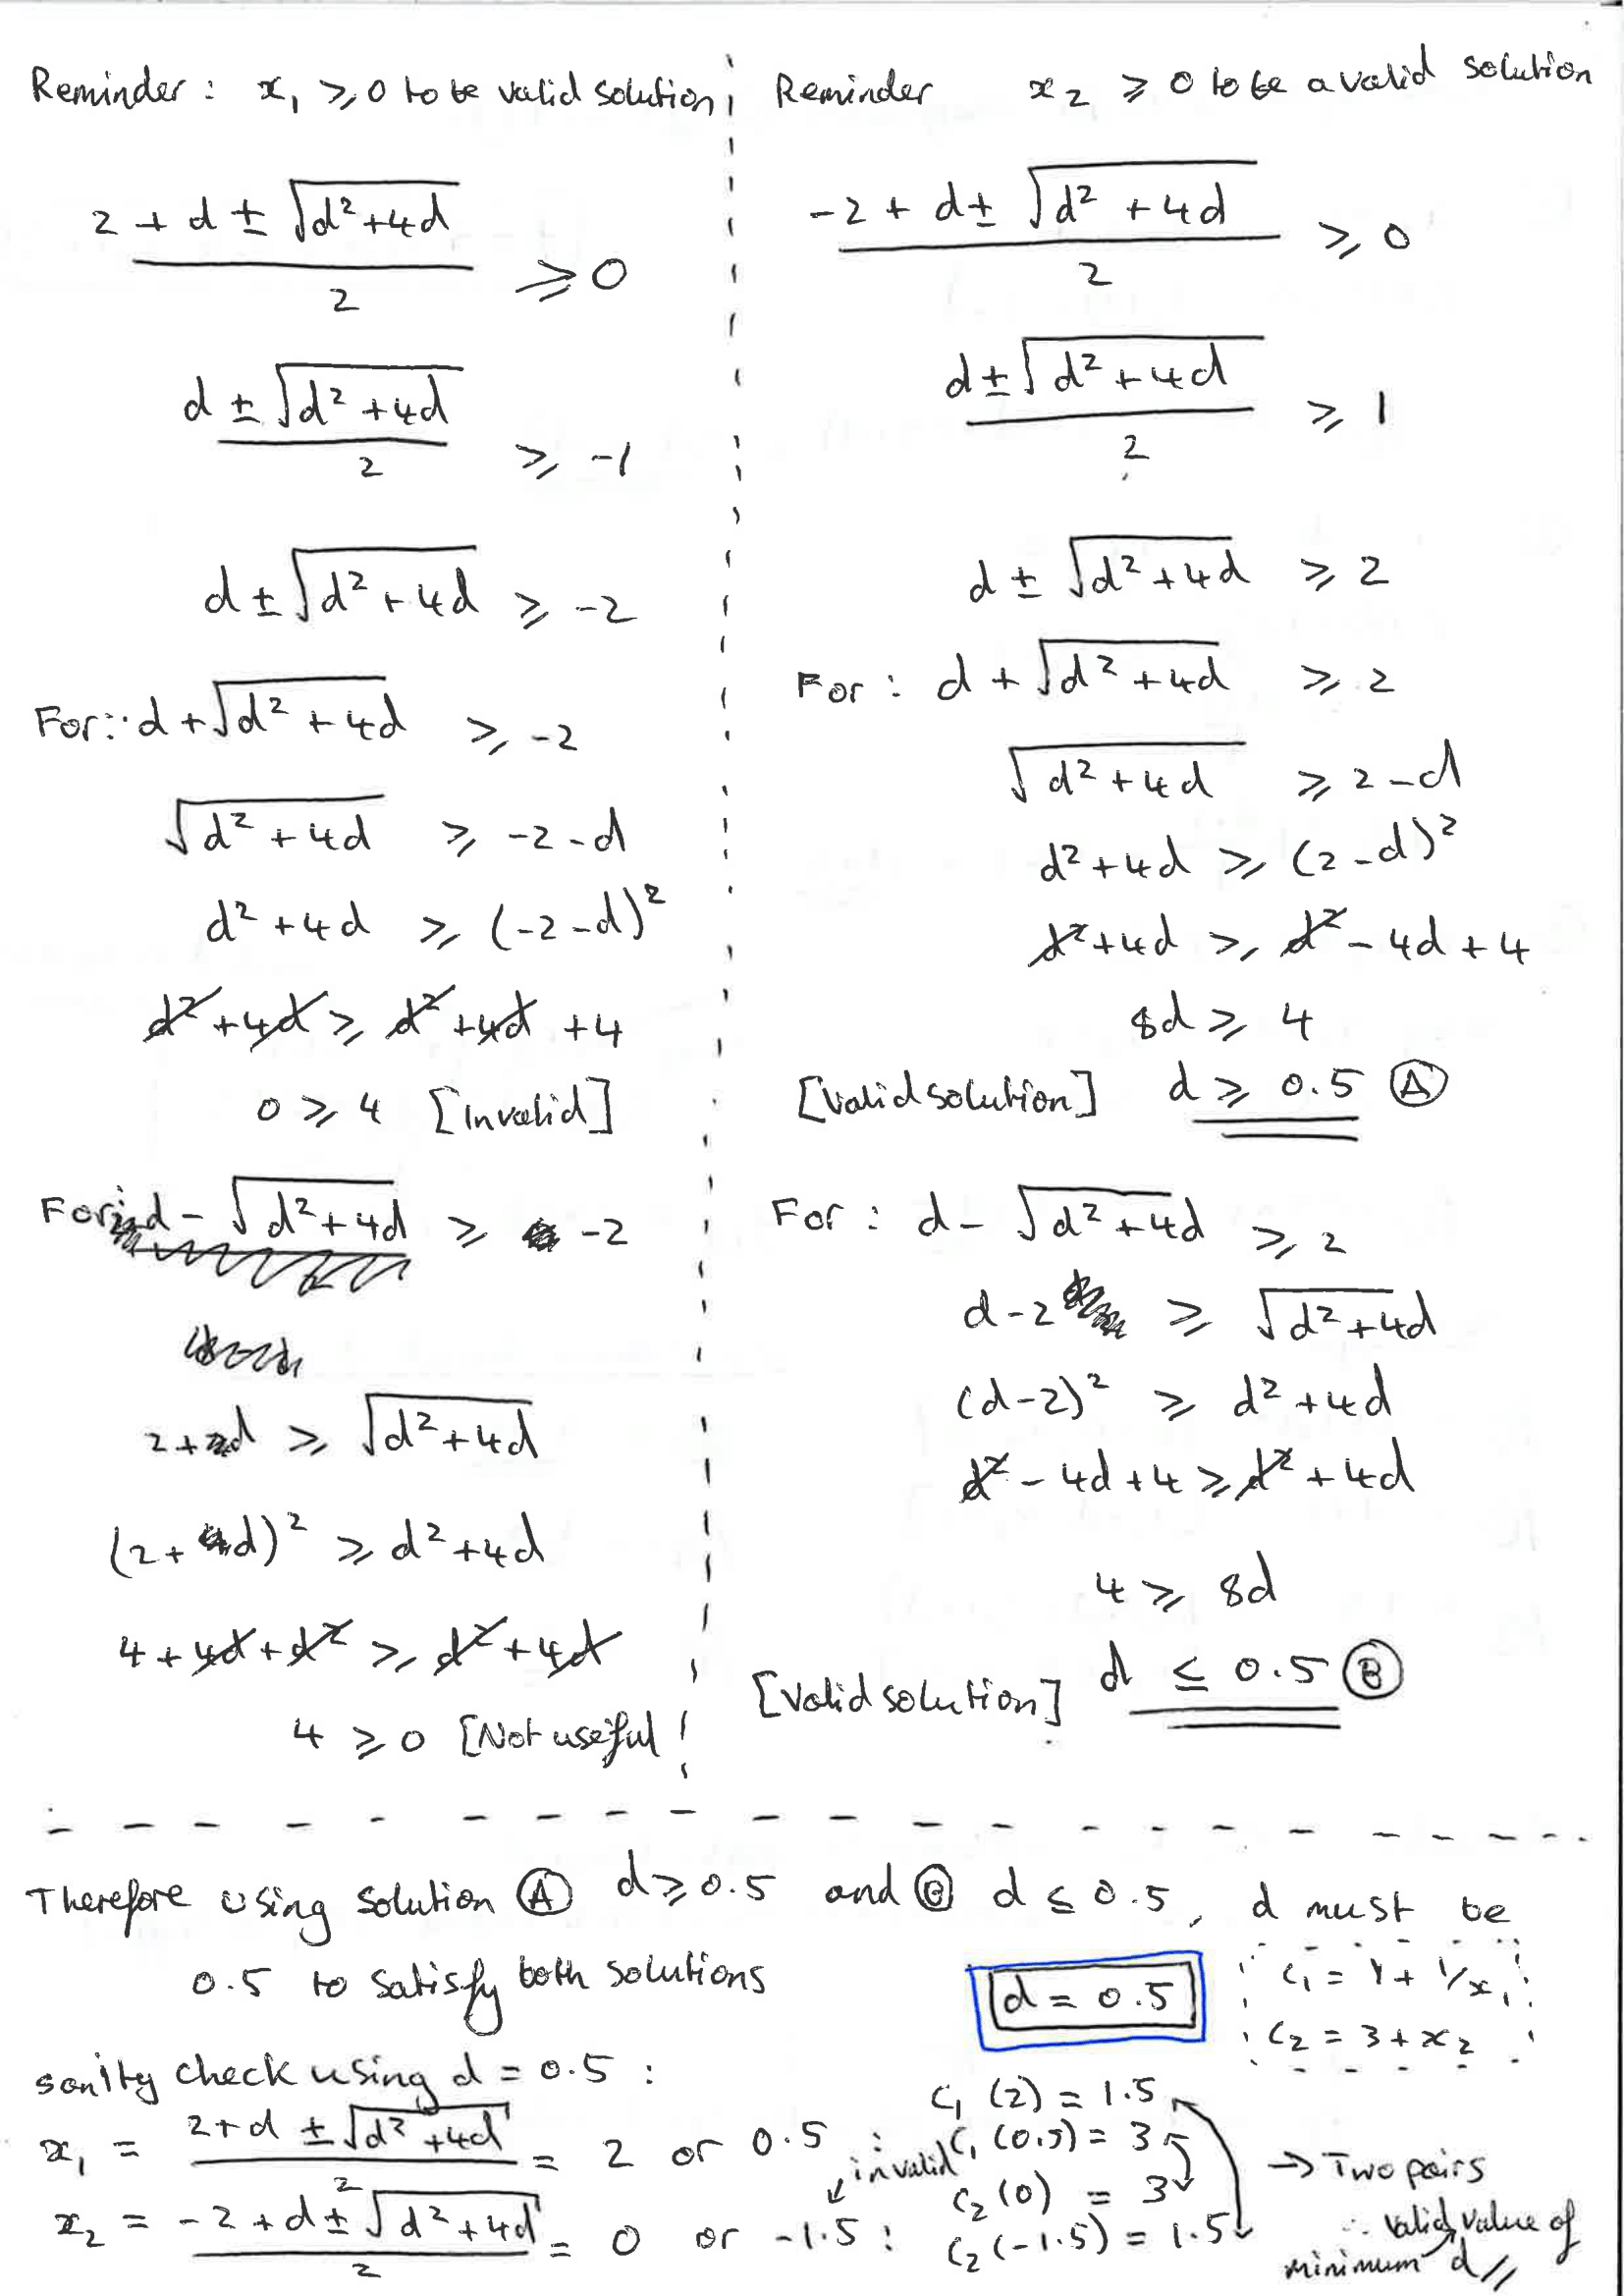 Reminder : x₁ ⩾ 0 to be valid solution
2 + d ± √(d² + 4d)
2
⩾ 0
d ± √(d² + 4d)
2
⩾ -1
d ± √(d² + 4d) ⩾ -2
For: d + √(d² + 4d) ⩾ -2
√(d² + 4d) ⩾ -2 - d
d² + 4d ⩾ (-2 - d)²
d² + 4d ⩾ d² + 4d + 4
0 ⩾ 4 [Invalid]
For: d - √(d² + 4d) ⩾ -2
2 + d ⩾ √(d² + 4d)
(2 + d)² ⩾ d² + 4d
4 + 4d + d² ⩾ d² + 4d
4 ⩾ 0 [Not useful]
Reminder x₂ ⩾ 0 to be a valid solution
-2 + d ± √(d² + 4d)
2
⩾ 0
d ± √(d² + 4d)
2
⩾ 1
d ± √(d² + 4d) ⩾ 2
For : d + √(d² + 4d) ⩾ 2
√(d² + 4d) ⩾ 2 - d
d² + 4d ⩾ (2 - d)²
d² + 4d ⩾ d² - 4d + 4
8d ⩾ 4
[Valid solution] d ⩾ 0.5 Ⓐ
For : d - √(d² + 4d) ⩾ 2
d - 2 ⩾ √(d² + 4d)
(d - 2)² ⩾ d² + 4d
d² - 4d + 4 ⩾ d² + 4d
4 ⩾ 8d
[Valid solution] d ≤ 0.5 Ⓑ
Therefore using solution Ⓐ d ⩾ 0.5 and Ⓑ d ≤ 0.5, d must be
0.5 to satisfy both solutions
d = 0.5
c₁ = 1 + 1/x₁
c₂ = 3 + x₂
sanity check using d = 0.5 :
x₁ = (2 + d ± √(d² + 4d))/2 = 2 or 0.5 :
x₂ = (-2 + d ± √(d² + 4d))/2 = 0 or -1.5 :
invalid
c₁ (2) = 1.5
c₁ (0.5) = 3
c₂ (0) = 3
c₂ (-1.5) = 1.5
→ Two pairs
∴ valid value of
minimum d //